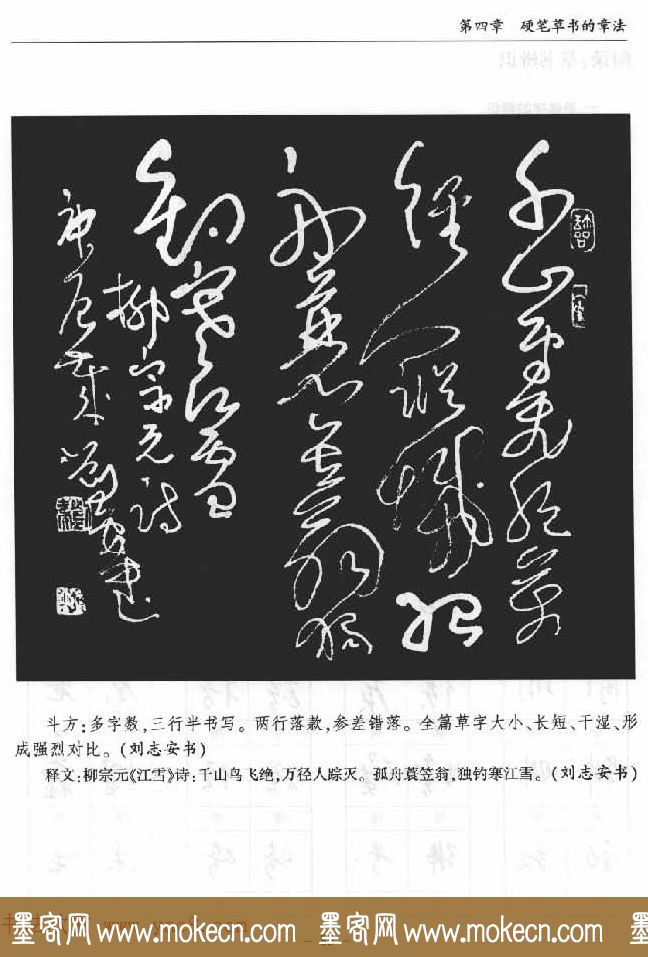 第四章 硬笔草书的章法
千山鸟飞绝万
径人踪灭孤
舟蓑笠翁独
钓寒江雪
柳宗元诗
庚辰
斗方:多字数,三行半书写。两行落款,参差错落。全篇草字大小、长短、干湿、形
成强烈对比。(刘志安书)
释文:柳宗元《江雪》诗:千山鸟飞绝,万径人踪灭。孤舟蓑笠翁,独钓寒江雪。(刘志安书)
墨客网 www.mokecn.com 墨客网 www.mokecn.com 墨